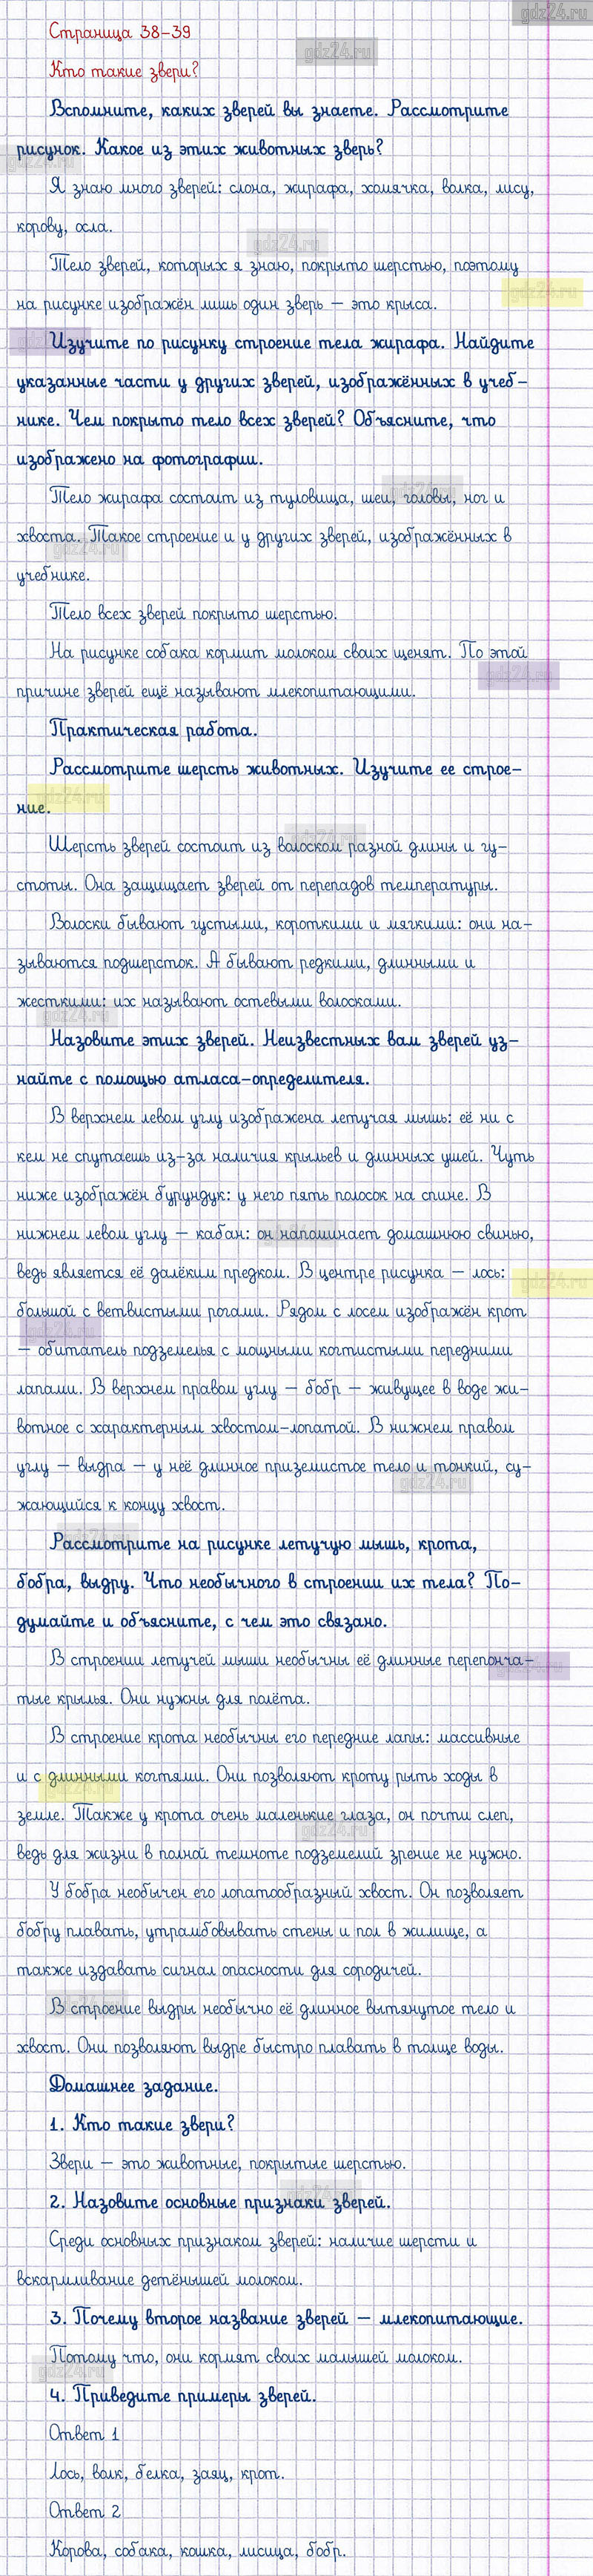 gdz24.ru
Страница 38-39
Кто такие звери?
Вспомните, каких зверей вы знаете. Рассмотрите
рисунок. Какое из этих животных зверь?
Я знаю много зверей: слона, жирафа, хомячка, волка, лису,
корову, осла.
Тело зверей, которых я знаю, покрыто шерстью, поэтому
на рисунке изображён лишь один зверь – это крыса.
Изучите по рисунку строение тела жирафа. Найдите
указанные части у других зверей, изображённых в учеб-
нике. Чем покрыто тело всех зверей? Объясните, что
изображено на фотографии.
Тело жирафа состоит из туловища, шеи, головы, ног и
хвоста. Такое строение и у других зверей, изображённых в
учебнике.
Тело всех зверей покрыто шерстью.
На рисунке собака кормит молоком своих щенят. По этой
причине зверей ещё называют млекопитающими.
Практическая работа.
Рассмотрите шерсть животных. Изучите ее строе-
ние.
Шерсть зверей состоит из волоском разной длины и гу-
стоты. Она защищает зверей от перепадов температуры.
Волоски бывают густыми, короткими и мягкими: они на-
зываются подшерсток. А бывают редкими, длинными и
жесткими: их называют остевыми волосками.
Назовите этих зверей. Неизвестных вам зверей уз-
найте с помощью атласа-определителя.
В верхнем левом углу изображена летучая мышь: её ни с
кем не спутаешь из-за наличия крыльев и длинных ушей. Чуть
ниже изображён бурундук: у него пять полосок на спине. В
нижнем левом углу – кабан: он напоминает домашнюю свинью,
ведь является её далёким предком. В центре рисунка – лось:
большой с ветвистыми рогами. Рядом с лосем изображён крот
– обитатель подземелья с мощными когтистыми передними
лапами. В верхнем правом углу – бобр – живущее в воде жи-
вотное с характерным хвостом-лопатой. В нижнем правом
углу – выдра – у неё длинное приземистое тело и тонкий, су-
жающийся к концу хвост.
Рассмотрите на рисунке летучую мышь, крота,
бобра, выдру. Что необычного в строении их тела? По-
думайте и объясните, с чем это связано.
В строении летучей мыши необычны её длинные перепонча-
тые крылья. Они нужны для полёта.
В строение крота необычны его передние лапы: массивные
и с длинными когтями. Они позволяют кроту рыть ходы в
земле. Также у крота очень маленькие глаза, он почти слеп,
ведь для жизни в полной темноте подземелий зрение не нужно.
У бобра необычен его лопатообразный хвост. Он позволяет
бобру плавать, утрамбовывать стены и пол в жилище, а
также издавать сигнал опасности для сородичей.
В строение выдры необычно её длинное вытянутое тело и
хвост. Они позволяют выдре быстро плавать в толще воды.
Домашнее задание.
1. Кто такие звери?
Звери – это животные, покрытые шерстью.
2. Назовите основные признаки зверей.
Среди основных признаком зверей: наличие шерсти и
вскармливание детёнышей молоком.
3. Почему второе название зверей – млекопитающие.
Потому что, они кормят своих малышей молоком.
4. Приведите примеры зверей.
Ответ 1
Лось, волк, белка, заяц, крот.
Ответ 2
Корова, собака, кошка, лисица, бобр.